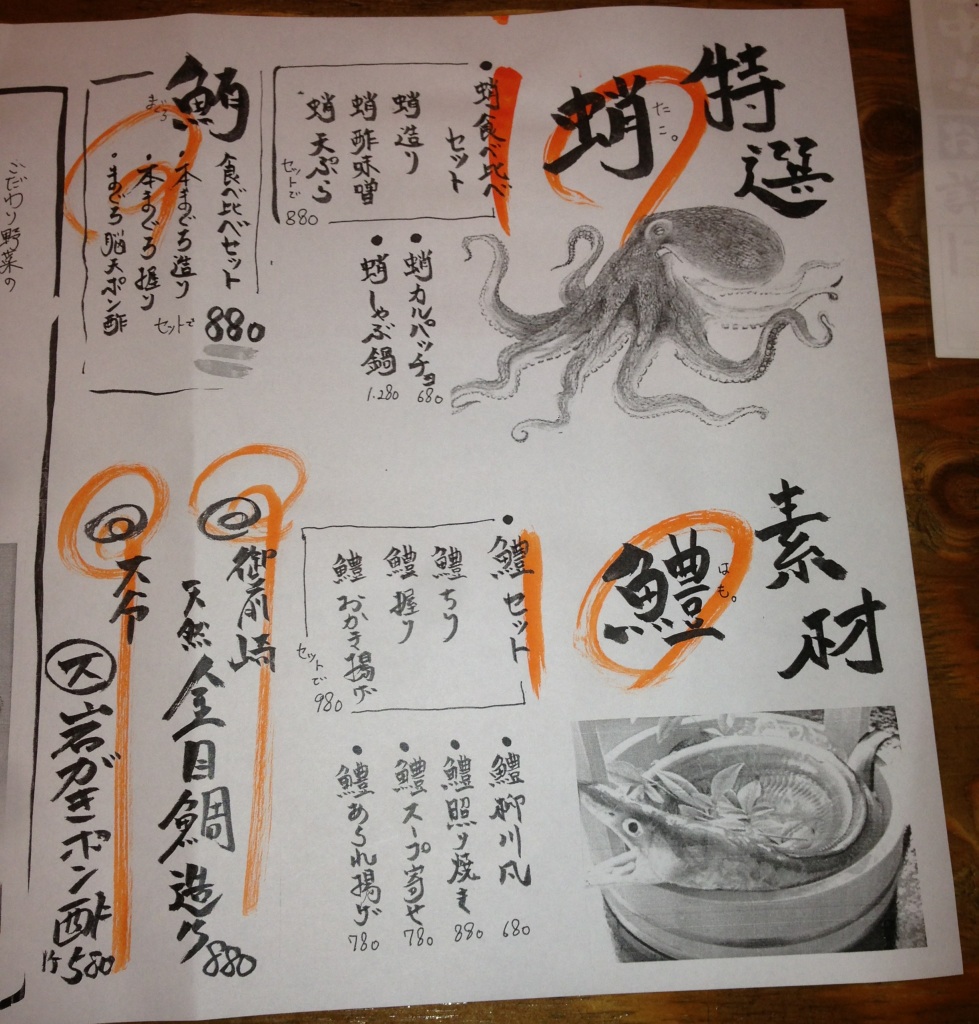 特選
素材
蛸
たこ。
・蛸食べ比べ
セット
蛸造り
蛸酢味噌
蛸天ぷら
セットで
880
・蛸カルパッチョ
680
・蛸しゃぶ鍋
1.280
まぐろ
食べ比べセット
・本まぐろ造り
・本まぐろ握り
・まぐろ脳天ポン酢
セットで
880
鱧
はも。
・鱧セット
鱧ちり
鱧握り
鱧おかき揚げ
セットで
980
・鱧柳川風
680
・鱧照り焼き
880
・鱧スープ寄せ
780
・鱧あられ揚げ
780
御前崎
天然金目鯛造り
880
大分
大岩がきポン酢
580
こだわり野菜の